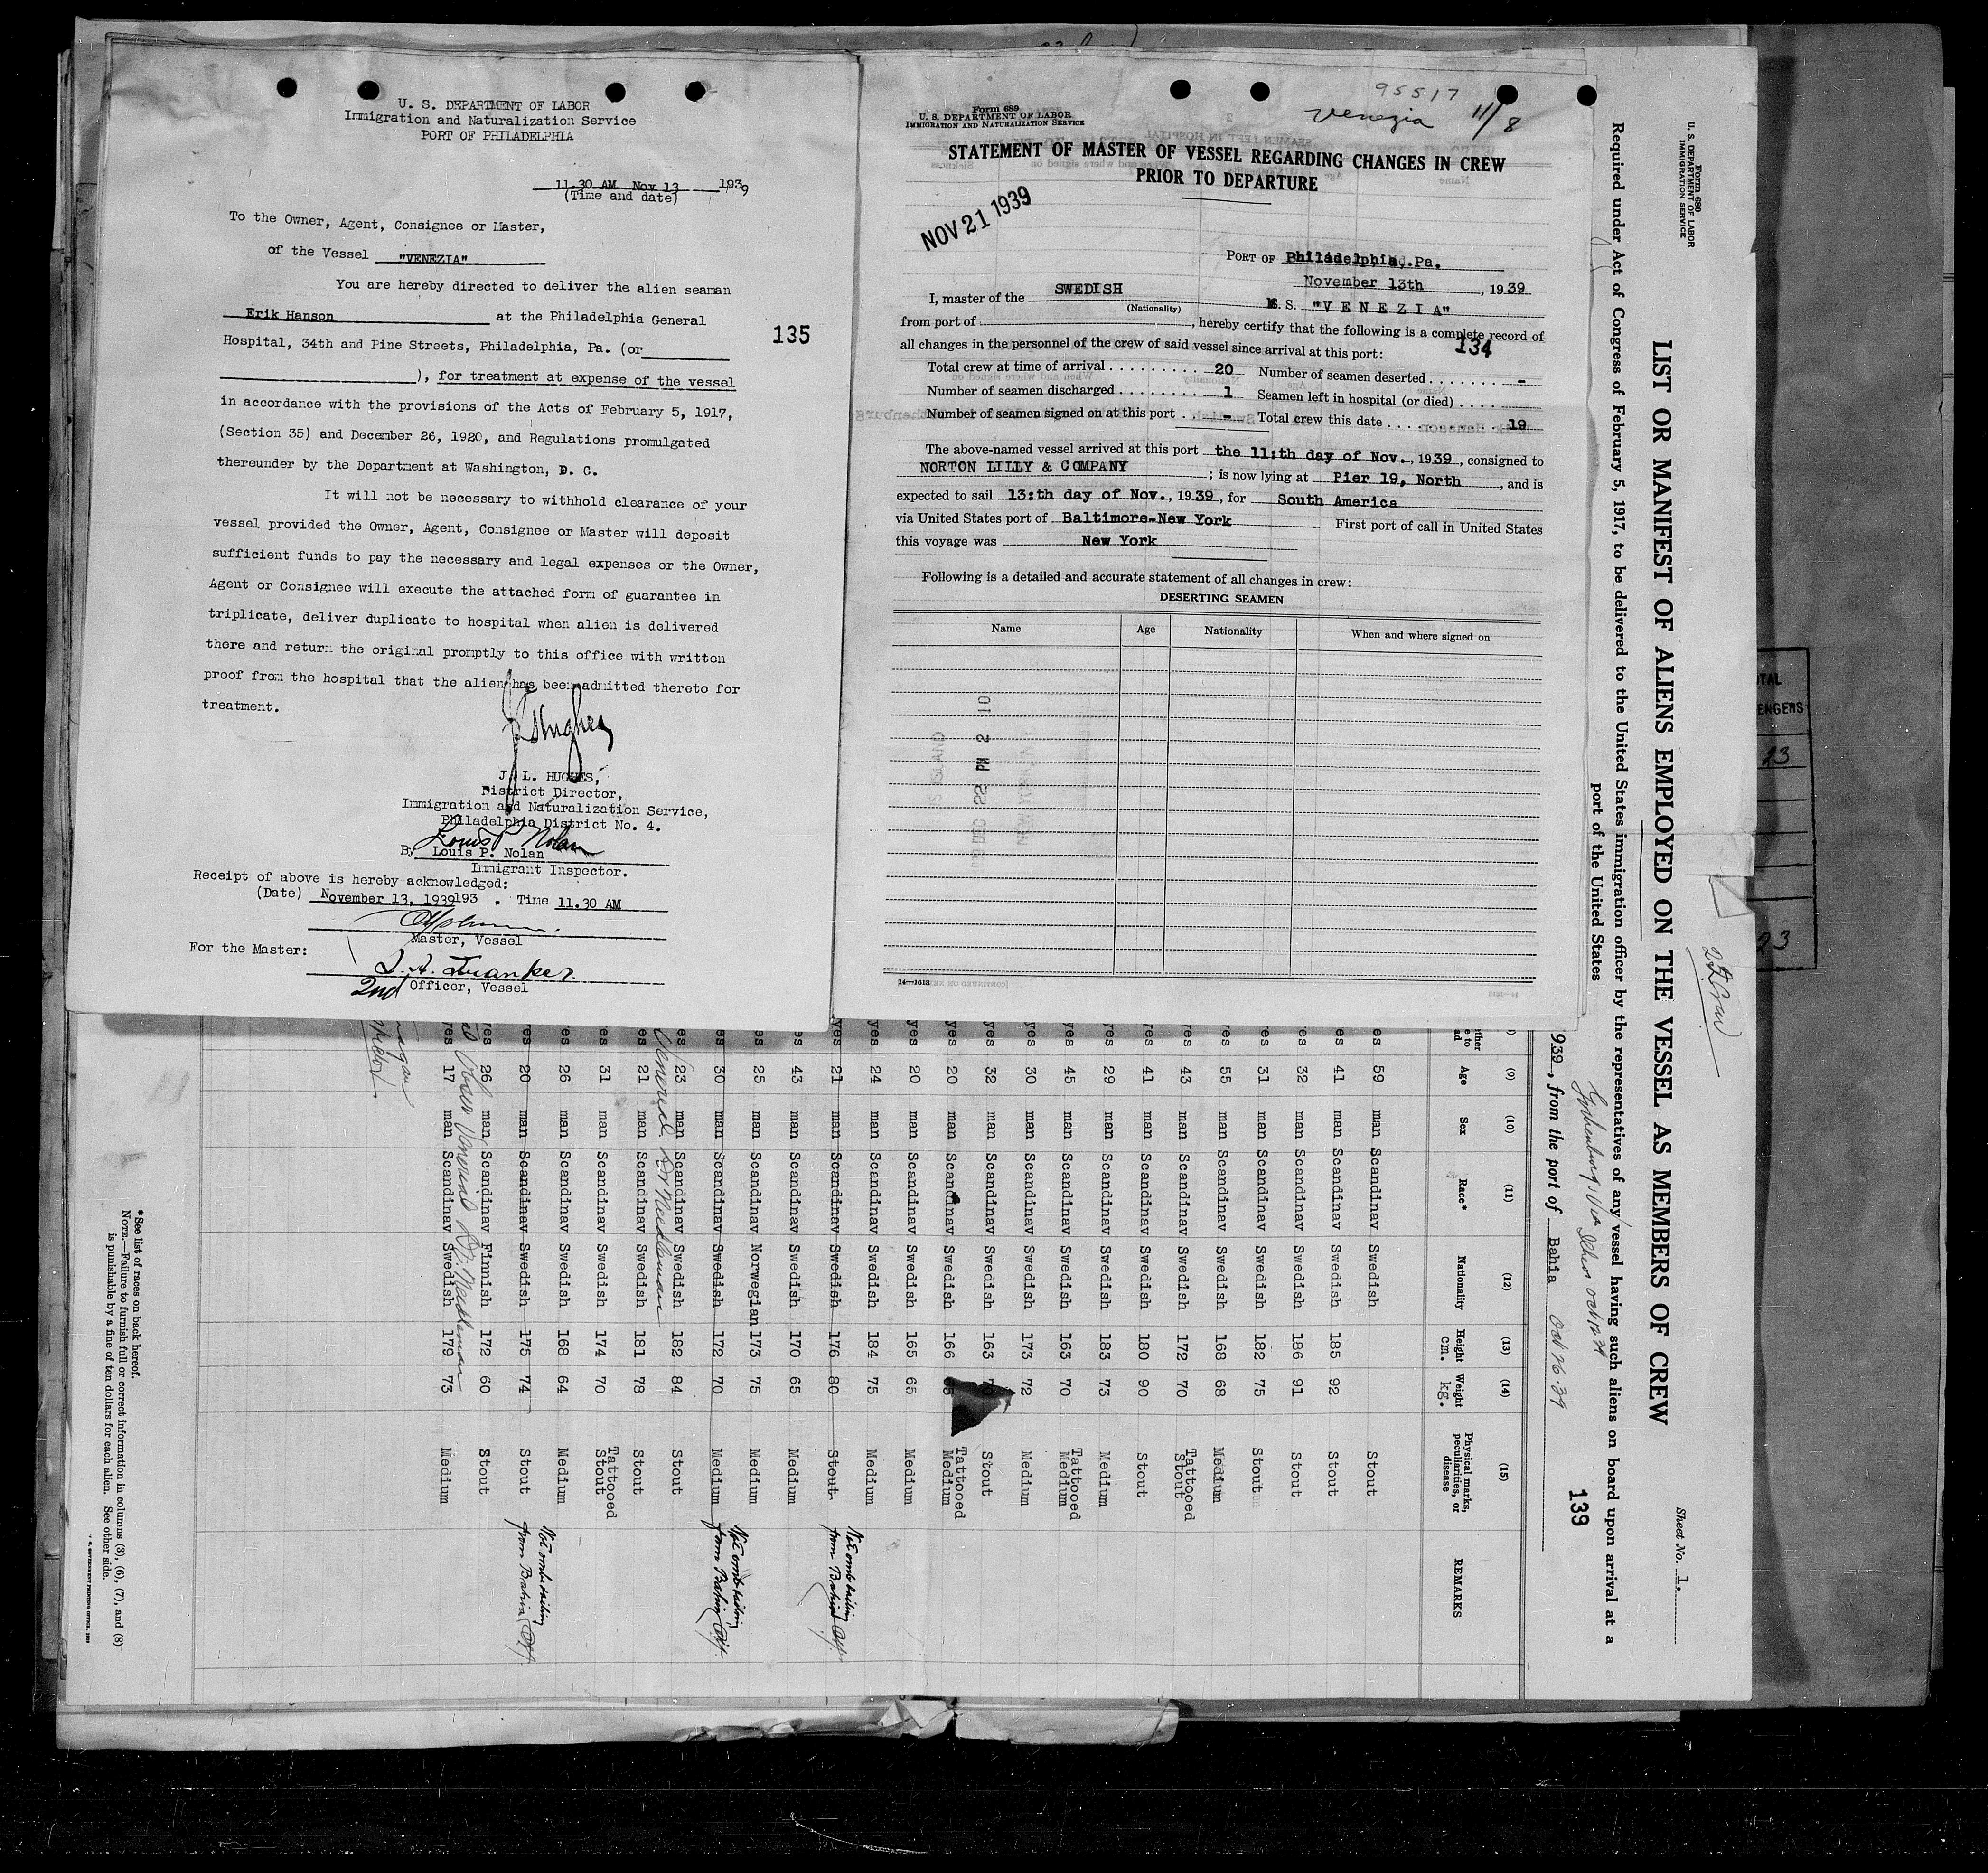 U. S. DEPARTMENT OF LABOR
Immigration and Naturalization Service
PORT OF PHILADELPHIA
11.30 AM Nov 13 1939
(Time and date)
To the Owner, Agent, Consignee or Master,
of the Vessel "VENEZIA"
You are hereby directed to deliver the alien seaman
Erik Hanson at the Philadelphia General
Hospital, 34th and Pine Streets, Philadelphia, Pa. (or
), for treatment at expense of the vessel
in accordance with the provisions of the Acts of February 5, 1917,
(Section 35) and December 26, 1920, and Regulations promulgated
thereunder by the Department at Washington, D. C.
It will not be necessary to withhold clearance of your
vessel provided the Owner, Agent, Consignee or Master will deposit
sufficient funds to pay the necessary and legal expenses or the Owner,
Agent or Consignee will execute the attached form of guarantee in
triplicate, deliver duplicate to hospital when alien is delivered
there and return the original promptly to this office with written
proof from the hospital that the alien has been admitted thereto for
treatment.
J. L. HUGHES,
District Director,
Immigration and Naturalization Service,
Philadelphia District No. 4.
Louis P. Nolan
By Louis P. Nolan
Immigrant Inspector.
Receipt of above is hereby acknowledged:
(Date) November 13, 1939 193 . Time 11.30 AM
Master, Vessel
For the Master:
2nd Officer, Vessel
135
95517
Venezia 11/8
Form 689
U. S. DEPARTMENT OF LABOR
IMMIGRATION AND NATURALIZATION SERVICE
STATEMENT OF MASTER OF VESSEL REGARDING CHANGES IN CREW
PRIOR TO DEPARTURE
NOV 21 1939
PORT OF Philadelphia, Pa.
November 13th, 1939
I, master of the SWEDISH M. S. "V E N E Z I A"
(Nationality)
from port of , hereby certify that the following is a complete record of
all changes in the personnel of the crew of said vessel since arrival at this port:
134
Total crew at time of arrival 20 Number of seamen deserted -
Number of seamen discharged 1 Seamen left in hospital (or died)
Number of seamen signed on at this port - Total crew this date 19
The above-named vessel arrived at this port the 11:th day of Nov., 1939, consigned to
NORTON LILLY & COMPANY ; is now lying at Pier 19, North, and is
expected to sail 13:th day of Nov., 1939, for South America
via United States port of Baltimore-New York First port of call in United States
this voyage was New York
Following is a detailed and accurate statement of all changes in crew:
DESERTING SEAMEN
Name Age Nationality When and where signed on
DEC 22 PM 2 10
14—1613
Form 680
U. S. DEPARTMENT OF LABOR
IMMIGRATION SERVICE
Sheet No. 1.
LIST OR MANIFEST OF ALIENS EMPLOYED ON THE VESSEL AS MEMBERS OF CREW
Required under Act of Congress of February 5, 1917, to be delivered to the United States immigration officer by the representatives of any vessel having such aliens on board upon arrival at a
port of the United States
139
939, from the port of Bahia Oct 26-39
(9) (10) (11) (12) (13) (14) (15)
Age Sex Race* Nationality Height cm. Weight kg. Physical marks, peculiarities, or disease REMARKS
59 man Scandinav Swedish Stout
yes 41 man Scandinav Swedish 185 92 Stout
yes 32 man Scandinav Swedish 186 91 Stout
yes 31 man Scandinav Swedish 182 75 Stout
yes 55 man Scandinav Swedish 168 68 Medium
yes 43 man Scandinav Swedish 172 70 Stout Tattooed
yes 41 man Scandinav Swedish 180 90 Stout
yes 29 man Scandinav Swedish 183 73 Medium
yes 45 man Scandinav Swedish 163 70 Medium Tattooed
yes 30 man Scandinav Swedish 173 72 Medium
yes 32 man Scandinav Swedish 163 Stout
yes 20 man Scandinav Swedish 166 Medium Tattooed
yes 20 man Scandinav Swedish 165 65 Medium
yes 24 man Scandinav Swedish 184 75 Medium
yes 21 man Scandinav Swedish 176 80 Stout Not onb sailing from Bahia
43 man Scandinav Swedish 170 65 Medium
25 man Scandinav Norwegian 173 75 Medium
30 man Scandinav Swedish 172 70 Medium Not onb sailing from Bahia
23 man Scandinav Swedish 182 84 Stout
Venereal Dr Needleman
21 man Scandinav Swedish 181 78 Stout
31 man Scandinav Swedish 174 70 Stout Tattooed
26 man Scandinav Swedish 168 64 Medium
20 man Scandinav Swedish 175 74 Stout Not onb sailing from Bahia
26 man Scandinav Finnish 172 60 Stout
17 man Scandinav Swedish 179 73 Medium
*See list of races on back hereof.
NOTE.—Failure to furnish full or correct information in columns (3), (6), (7), and (8)
is punishable by a fine of ten dollars for each alien. See other side.
23
23